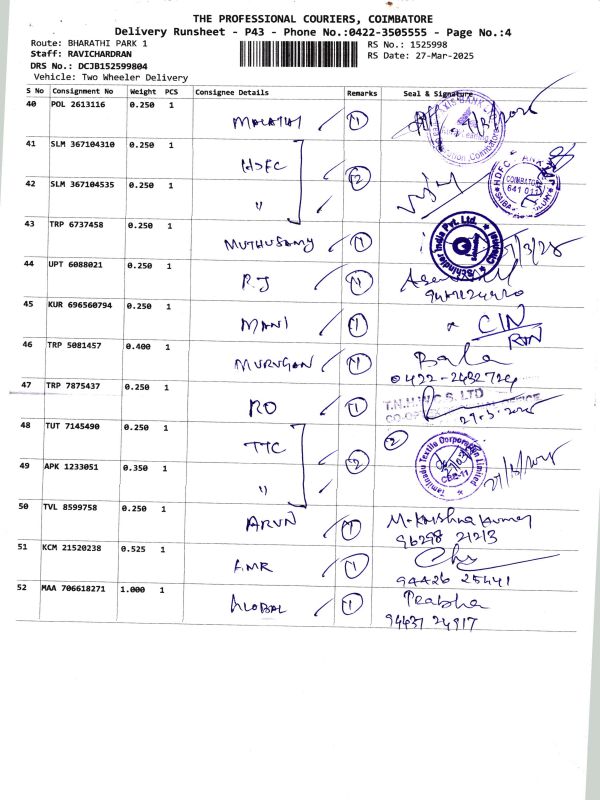 THE PROFESSIONAL COURIERS, COIMBATORE
Delivery Runsheet - P43 - Phone No.:0422-3505555 - Page No.:4
Route: BHARATHI PARK 1 RS No.: 1525998
Staff: RAVICHARDRAN RS Date: 27-Mar-2025
DRS No.: DCJB152599804
Vehicle: Two Wheeler Delivery
S No Consignment No Weight PCS Consignee Details Remarks Seal & Signature
40 POL 2613116 0.250 1
MALATHI 1
41 SLM 367104310 0.250 1
HDFC
2
42 SLM 367104535 0.250 1
"
43 TRP 6737458 0.250 1
MUTHUSAMY 1
44 UPT 6088021 0.250 1
R.J 1
45 KUR 696560794 0.250 1
MANI 1 CIN
46 TRP 5081457 0.400 1
MURUGAN 1 Bala
0422-2432724
47 TRP 7875437 0.250 1
RO 1 T.N.H.W.C.S. LTD
48 TUT 7145490 0.250 1
TTC 2
2
Tamilnadu Textile Corporation Limited
CBE-11
49 APK 1233051 0.350 1
"
50 TVL 8599758 0.250 1
ARUN 1 M. Krishna Kumar
96298 21213
51 KCM 21520238 0.525 1
AMR 1
94426 25441
52 MAA 706618271 1.000 1
GLOBAL 1 Prabha
94437 24917
HDFC BANK
COIMBATORE
641 011
SAIBABA COLONY
AXIS BANK
Schindler India Pvt. Ltd.